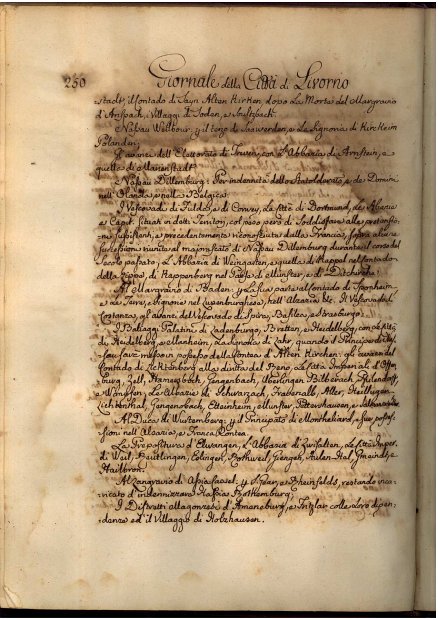 250 Giornale della Città di Livorno
stadt, il Contado di Sayn Alten Kirken, dopo La Morte del Margravio
d'Anspach, i Villaggi di Soden, e
Nassau Weilbour: il terzo di Saarwerden, e La Signoria di Kirckheim
Polanden.
Gl'avanzi dell'Elettorato di Treveri, con L'Abbazia di Arnstein, e
quella di Marienstadt.
Nassau Dillemburg: Per indennità dello Statolderato, e de Domini
nell'Olanda, e nella Belgica.
I Vescovadi di Fulda, e di Corvey, La Città di Dortmund, le Abbazie
e Capit. situati in detti Territori, col peso però di Soddisfare alle pretensio-
ni sussistenti, e precedentemente riconosciute dalla Francia, sopra alcune
successioni riunite al majorascato di Nassau Dillemburg durante il corso del
Secolo passato, L'Abbazia di Weingarten, e quella di Kappel nel Contado
della Lippa, di Kappenberg nel Paese di Munster, e di Dietkirchen.
Al Margravio di Baden: per la sua parte al Contado di Sponheim
e i Beni, e Signorie nel Luxemburghese, nell'Alsazia &c. Il Vescovado di
Costanza, gl'avanzi de' Vescovadi di Spira, Basilea, e Strasburgo.
I Baliaggi Palatini di Ladenburgo, Bretten, e Heidelberg, con le Città
di Heidelberg, e Manheim, la Signoria di Lahr, quando il Principe di Nas-
sau sarà messo in possesso della Contea di Alten Kirchen: gl'avanzi del
Contado di alla diritta del Reno, Le Città Imperiali d'Offen-
burg, Zell, Gengenbach, Uberlingen Biberach, Pfulendorf,
e Wimpfen, Le Abbazie di Schwarzach, Frauenalb, Aller
Lichtenthal, Gengenbach, Ettenheim, Munster, Petershausen, e
Al Duca di Wurtemberg: per il Principato di Montbeliard, e sue posses-
sioni nell'Alsazia, e Franca Contea.
La Prepositura d'Elwangen, L'Abbazia di Zwifalten, Le Città Imper.
di Weil, Reutlingen, Eslingen, Rothweil, Giengen, Aulen, Hal, Gmaind, e
Hailbron.
Al Langravio di Assia Cassel: per S. Goar, e Rheinfelds, restando inca-
ricato d'indennizzare Hassia Rothemburg:
I Distretti Magonzesi d'Amoneburg, e Fritzlar colle Loro dipen-
denze ed il Villaggio di Holzhausen.